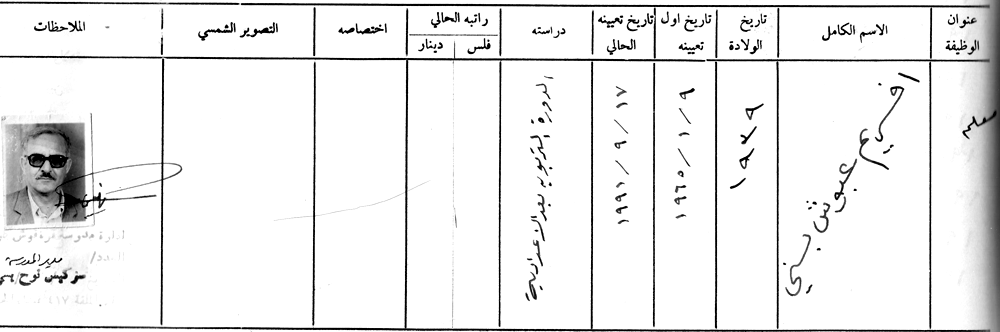 عنوان الوظيفة
الاسم الكامل
تاريخ الولادة
تاريخ اول تعيينه
تاريخ تعيينه الحالي
دراسته
راتبه الحالي
فلس
دينار
اختصاصه
التصوير الشمسي
الملاحظات
معلم
افريم عبوش بني
١٩٣٩
١٩٦٥/١/٩
١٩٩١/٩/١٧
الدورة التربوية بعد الاعدادية
مدير المدرسة
سركيس نوح